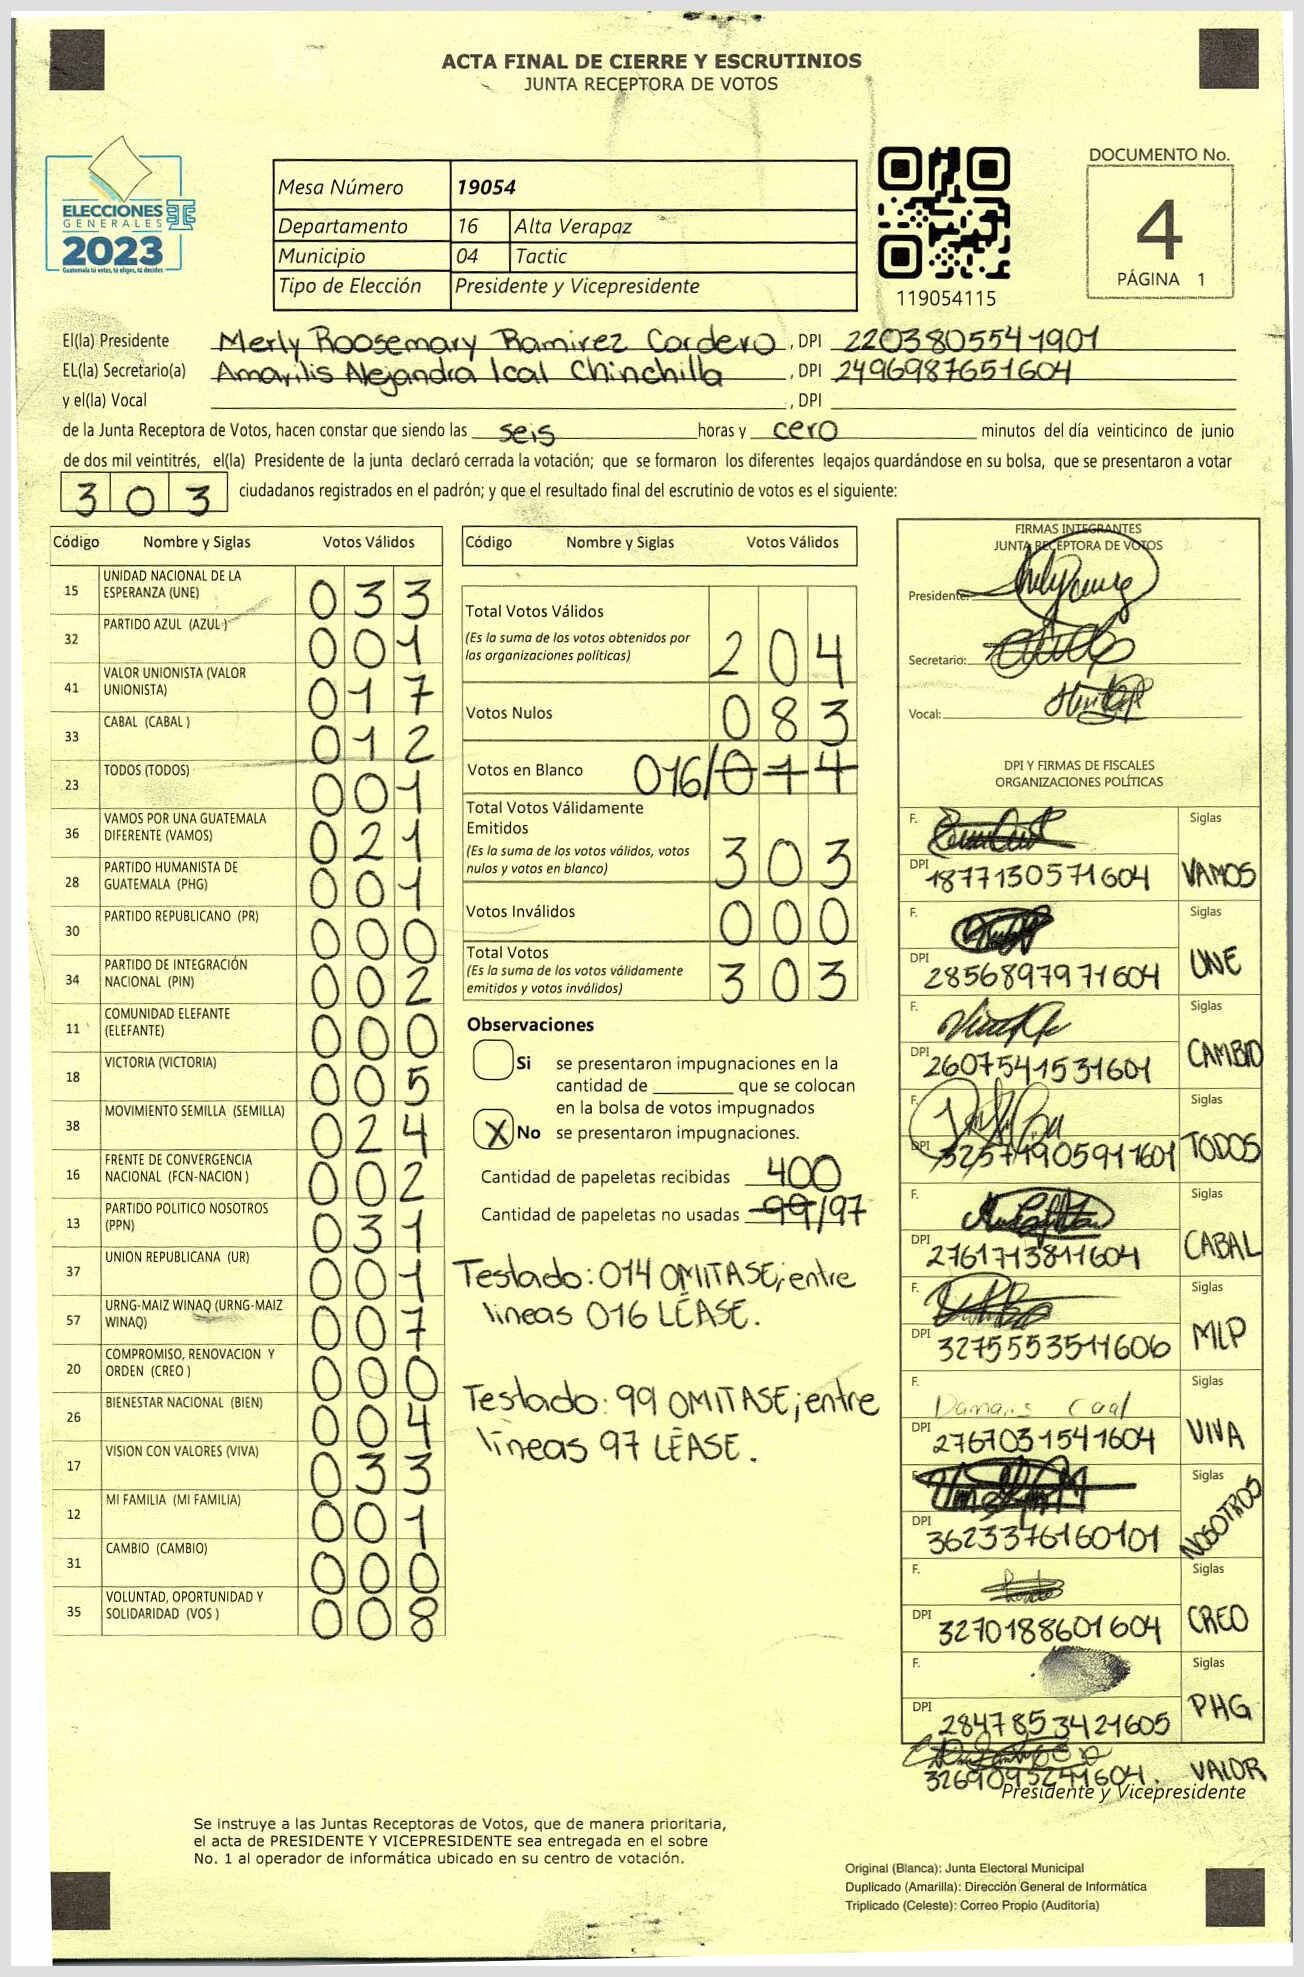 ACTA FINAL DE CIERRE Y ESCRUTINIOS
JUNTA RECEPTORA DE VOTOS
ELECCIONES
GENERALES
2023
Guatemala tú votas, tú eliges, tú decides
Mesa Número 19054
Departamento 16 Alta Verapaz
Municipio 04 Tactic
Tipo de Elección Presidente y Vicepresidente
119054115
DOCUMENTO No.
4
PÁGINA 1
El(la) Presidente Merly Roosemary Ramirez Cordero, DPI 2203805541901
EL(la) Secretario(a) Amarilis Alejandra Ical Chinchilla, DPI 2496987651604
y el(la) Vocal , DPI
de la Junta Receptora de Votos, hacen constar que siendo las seis horas y cero minutos del día veinticinco de junio
de dos mil veintitrés, el(la) Presidente de la junta declaró cerrada la votación; que se formaron los diferentes legajos guardándose en su bolsa, que se presentaron a votar
303 ciudadanos registrados en el padrón; y que el resultado final del escrutinio de votos es el siguiente:
Código Nombre y Siglas Votos Válidos
15 UNIDAD NACIONAL DE LA ESPERANZA (UNE) 033
32 PARTIDO AZUL (AZUL ) 001
41 VALOR UNIONISTA (VALOR UNIONISTA) 017
33 CABAL (CABAL ) 012
23 TODOS (TODOS) 001
36 VAMOS POR UNA GUATEMALA DIFERENTE (VAMOS) 021
28 PARTIDO HUMANISTA DE GUATEMALA (PHG) 001
30 PARTIDO REPUBLICANO (PR) 000
34 PARTIDO DE INTEGRACIÓN NACIONAL (PIN) 002
11 COMUNIDAD ELEFANTE (ELEFANTE) 000
18 VICTORIA (VICTORIA) 005
38 MOVIMIENTO SEMILLA (SEMILLA) 024
16 FRENTE DE CONVERGENCIA NACIONAL (FCN-NACION ) 002
13 PARTIDO POLITICO NOSOTROS (PPN) 031
37 UNION REPUBLICANA (UR) 001
57 URNG-MAIZ WINAQ (URNG-MAIZ WINAQ) 007
20 COMPROMISO, RENOVACION Y ORDEN (CREO ) 000
26 BIENESTAR NACIONAL (BIEN) 004
17 VISION CON VALORES (VIVA) 033
12 MI FAMILIA (MI FAMILIA) 001
31 CAMBIO (CAMBIO) 000
35 VOLUNTAD, OPORTUNIDAD Y SOLIDARIDAD (VOS ) 008
Código Nombre y Siglas Votos Válidos
Total Votos Válidos 204
(Es la suma de los votos obtenidos por
las organizaciones políticas)
Votos Nulos 083
Votos en Blanco 016/014
Total Votos Válidamente
Emitidos 303
(Es la suma de los votos válidos, votos
nulos y votos en blanco)
Votos Inválidos 000
Total Votos 303
(Es la suma de los votos válidamente
emitidos y votos inválidos)
Observaciones
Si se presentaron impugnaciones en la
cantidad de ________ que se colocan
en la bolsa de votos impugnados
X No se presentaron impugnaciones.
Cantidad de papeletas recibidas 400
Cantidad de papeletas no usadas 99/97
Testado: 014 OMITASE; entre
lineas 016 LÉASE.
Testado: 99 OMITASE; entre
líneas 97 LÉASE.
FIRMAS INTEGRANTES
JUNTA RECEPTORA DE VOTOS
Presidente:
Secretario:
Vocal:
DPI Y FIRMAS DE FISCALES
ORGANIZACIONES POLÍTICAS
F. Siglas
DPI 1877130571604 VAMOS
F. Siglas
DPI 2856897971604 UNE
F. Siglas
DPI 2607541531601 CAMBIO
F. Siglas
DPI 32574905911601 TODOS
F. Siglas
DPI 2761713811604 CABAL
F. Siglas
DPI 3275553511606 MLP
F. Damaris Caal Siglas
DPI 2767031541604 VIVA
F. Siglas
DPI 3623376160101 NOSOTROS
F. Siglas
DPI 3270188601604 CREO
F. Siglas
DPI 2847853421605 PHG
3269095241604. VALOR
Presidente y Vicepresidente
Se instruye a las Juntas Receptoras de Votos, que de manera prioritaria,
el acta de PRESIDENTE Y VICEPRESIDENTE sea entregada en el sobre
No. 1 al operador de informática ubicado en su centro de votación.
Original (Blanca): Junta Electoral Municipal
Duplicado (Amarilla): Dirección General de Informática
Triplicado (Celeste): Correo Propio (Auditoría)